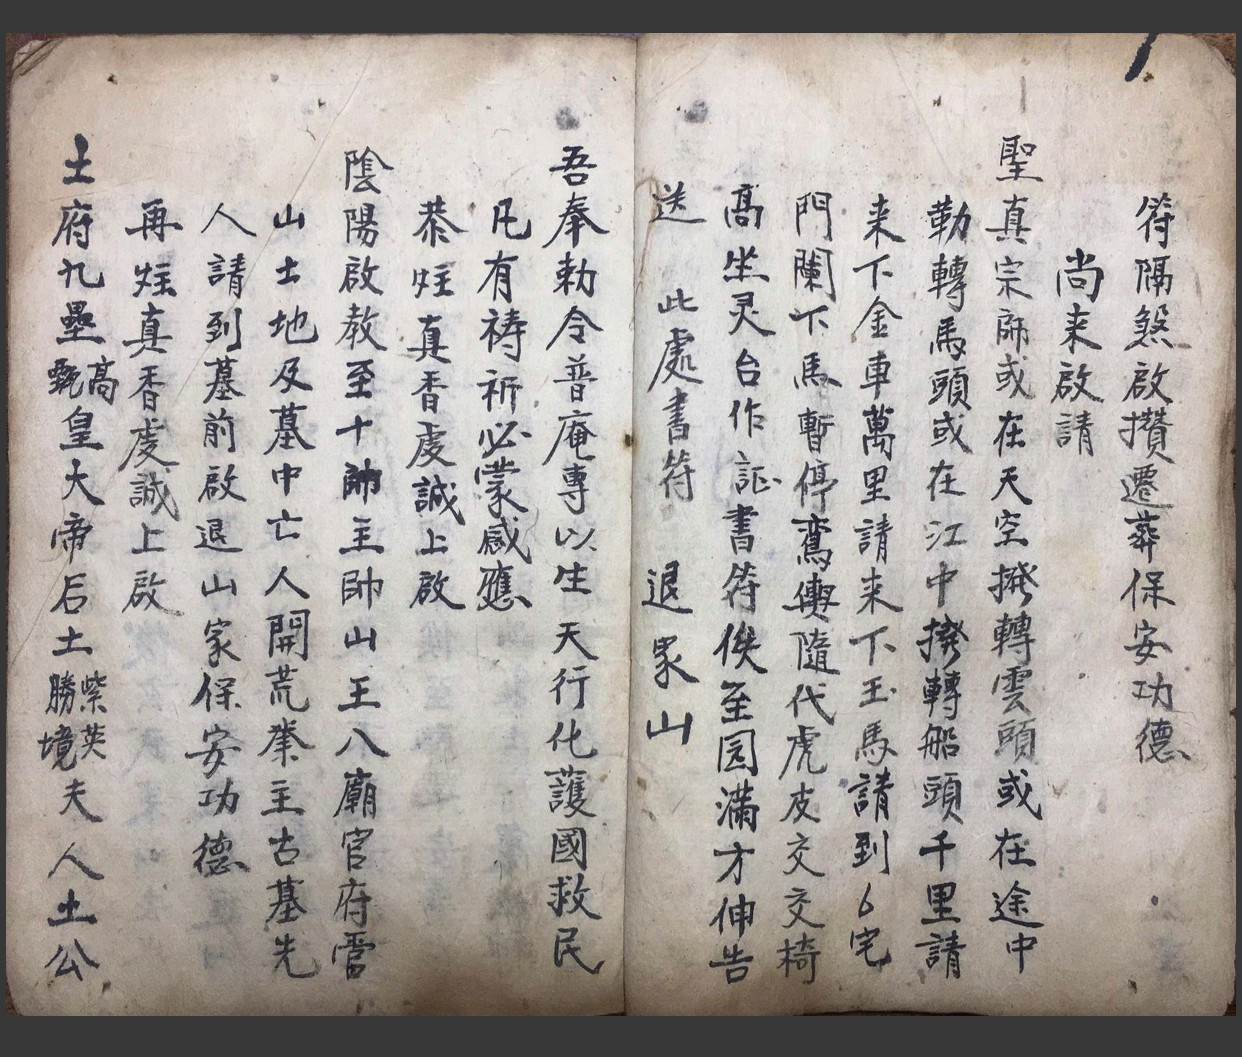 符隔煞啟攢遷葬保安功德
尚来啟請
聖真宗師或在天空撥轉雲頭或在途中
勒轉馬頭或在江中撥轉船頭千里請
来下金車萬里請来下玉馬請到宅
門闌下馬暫停鸞輿隨代虎皮交交椅
高坐灵台作証書符俟至园滿才伸告
送 此處書符 退冢山
吾奉勅令普庵專以生天行化護國救民
凡有禱祈必蒙感應
恭炷真香虔誠上啟
陰陽啟教至十帥主帥山王八廟官府當
山土地及墓中亡人開荒拳主古墓先
人請到墓前啟退山家保安功德
再炷真香虔誠上啟
土府九壘高甄皇大帝后土紫英勝境夫人土公